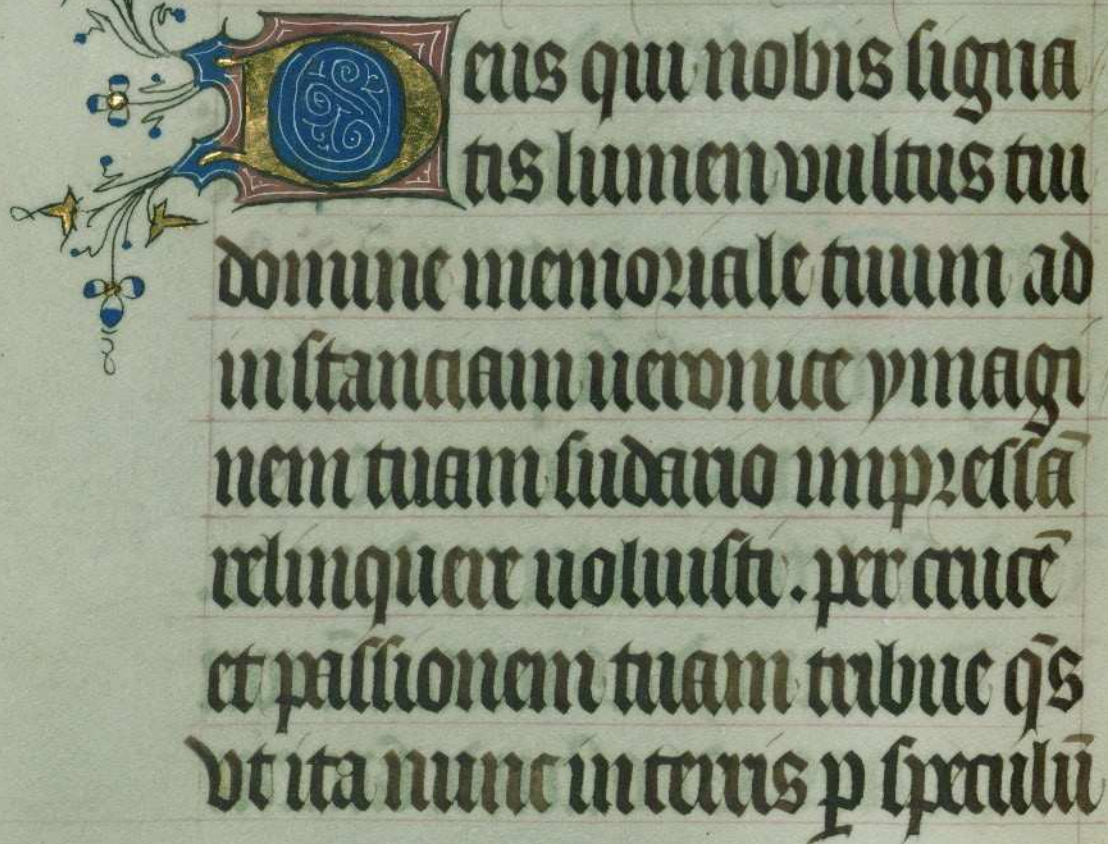 Deus qui nobis signa
tis lumen vultus tui
domine memoriale tuum ad
instanciam ueronice ymagi
nem tuam sudario impressā
relinquere uoluisti . per crucē
et passionem tuam tribue qs̄
vt ita nunc in terris ꝑ speculū